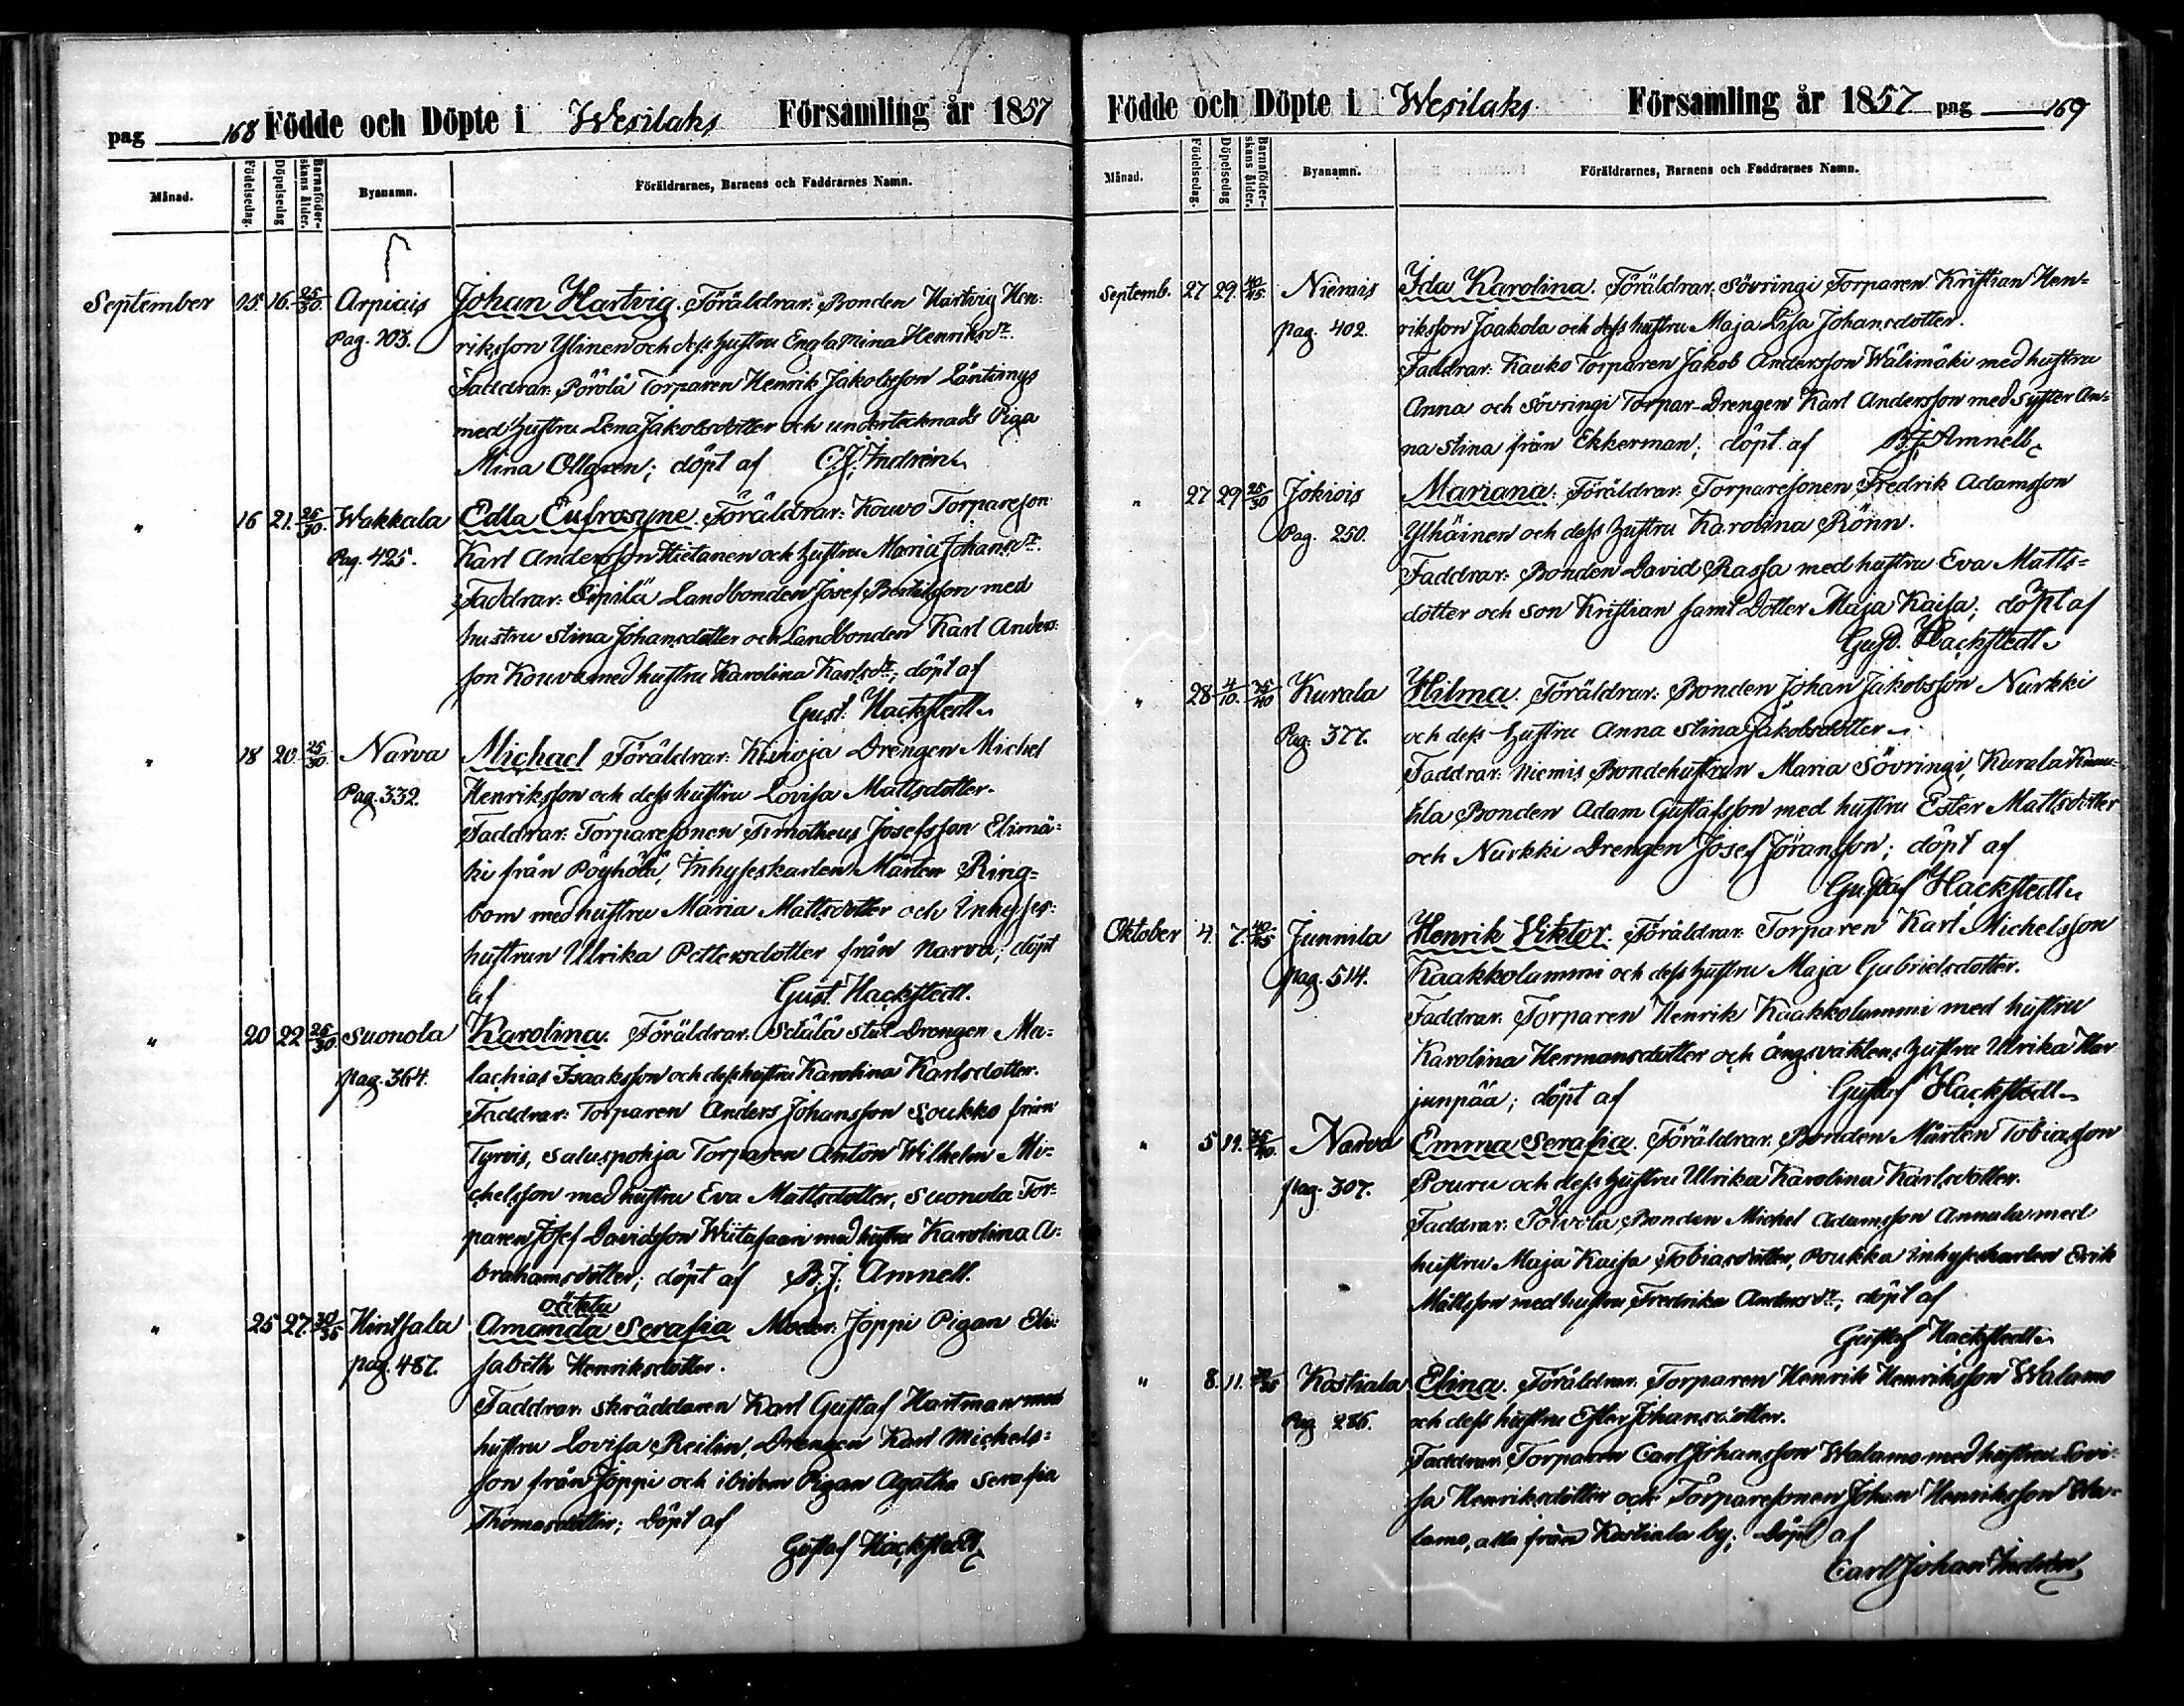 pag 168 Födde och Döpte i Wesilaks Församling år 1857
Månad. Födelsedag. Döpelsedag Barnaföderskans ålder. Byanamn. Föräldrarnes, Barnens och Faddrarnes Namn.
September 15. 16. 25/30. Arpiais Johan Hartvig. Föräldrar: Bonden Hartvig Hen:
Pag. 103. riksson Ylinen och dess hustru Engla Mina Henriksdr.
Faddrar: Pörölä Torparen Henrik Jakobsson Läntinys
med hustru Lena Jakobsdotter och undertecknads Piga
Mina Ollgren; döpt af C.J. Indrén
" 16 21. 25/30. Wakkala Edla Eufrosyne. Föräldrar: Kouvo Torpareson
Pag. 425. Karl Andersson Hietanen och hustru Maria Johansdr.
Faddrar: Sipilä Landbonden Josef Bertilsson med
hustru Stina Johansdotter och Landbonden Karl Anders:
son Kouvo med hustru Karolina Karlsdr; döpt af
Gust. Hackstedt
" 18 20. 25/30. Narva Michael Föräldrar: Kinoja Drengen Michel
Pag. 332. Henriksson och dess hustru Lovisa Mattsdotter.
Faddrar: Torparesonen Timotheus Josefsson Elimä:
ki från Pöyhölä, Inhyseskarlen Mårten Ring=
bom med hustru Maria Mattsdotter och Inhyses:
hustrun Ulrika Pettersdotter från Narva; döpt
af Gust. Hackstedt.
" 20 22 25/30. Suonola Karolina. Föräldrar: Sdälä Stat Drengen Ma:
pag. 364. lachias Isaaksson och dess hustru Karolina Karlsdotter.
Faddrar: Torparen Anders Johansson Soukko från
Tyrvis, Saluspohja Torparen Anton Wilhelm Mi:
chelsson med hustru Eva Mattsdotter, Suonola Tor:
paren Josef Davidsson Wiitasaari med hustru Karolina A:
brahamsdotter; döpt af B.J. Amnell.
oäkta
" 25 27. 30/35 Hintsala Amanda Serafia Moder: Joppi Pigan Eli:
pag. 487. sabeth Henriksdotter.
Faddrar: Skräddaren Karl Gustaf Hartman med
hustru Lovisa Reilin, Drengen Karl Michels=
son från Joppi och ibidem Pigan Agatha Serafia
Thomasdotter; Döpt af
Gustaf Hackstedt
Födde och Döpte i Wesilaks Församling år 1857 pag 169
Månad. Födelsedag. Döpelsedag Barnaföderskans ålder. Byanamn. Föräldrarnes, Barnens och Faddrarnes Namn.
Septemb. 27 29. 40/45 Niemis Ida Karolina. Föräldrar: Sövringi Torparen Kristian Hen=
pag. 402. riksson Jaakola och dess hustru Maja Lisa Johansdotter.
Faddrar: Kauko Torparen Jakob Andersson Wälimäki med hustru
Anna och Sövringi Torpar-Drengen Karl Andersson med Syster An=
na Stina från Ekkerman; döpt af B.J. Amnell
" 27 29 25/30 Jokiois Mariana. Föräldrar: Torparesonen Fredrik Adamsson
Pag. 250. Ylhäinen och dess hustru Karolina Rönn.
Faddrar: Bonden David Rassa med hustru Eva Matts=
dotter och son Kristian samt Dotter Maja Kaisa; döpt af
Gust. Hackstedt
" 28 4/10. 35/40 Kurala Hilma. Föräldrar: Bonden Johan Jakobsson Nurkki
Pag. 377. och dess hustru Anna Stina Jakobsdotter
Faddrar: Niemis Bondehustrun Maria Sövringi, Kurala
Bonden Adam Gustafsson med hustru Ester Mattsdotter
och Nurkki Drengen Josef Jöransson; döpt af
Gustaf Hackstedt
Oktober 4. 7. 40/45 Junnila Henrik Viktor. Föräldrar: Torparen Karl Michelsson
pag. 514. Kaakkolammi och dess hustru Maja Gabrielsdotter.
Faddrar: Torparen Henrik Kaakkolammi med hustru
Karolina Hermansdotter och Ängsvaktens hustru Ulrika Har
junpää; döpt af Gustaf Hackstedt
" 5 11. 35/40. Narva Emma Serafia. Föräldrar: Bonden Mårten Tobiasson
pag. 307. Pouru och dess hustru Ulrika Karolina Karlsdotter.
Faddrar: Toivola Bonden Michel Adamsson Annala med
hustru Maja Kaisa Tobiasdotter, Poukka Inhyseskarlen Erik
Mattsson med hustru Fredrika Andersdr; döpt af
Gustaf Hackstedt
" 8. 11. Kostiala Elina. Föräldrar: Torparen Henrik Henriksson Walamo
Pag 286. och dess hustru Ester Johansdotter.
Faddrar: Torparen Carl Johansson Walamo med hustru Lovi:
sa Henriksdotter och Torparesonen Johan Henriksson Wa=
lamo, alla från Kostiala by; Döpt af
Carl Johan Indrén